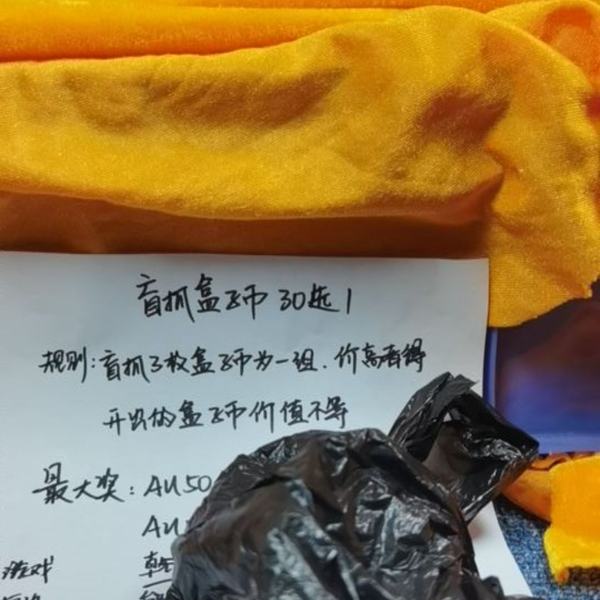 盲抓盒子币 30选1
规则:盲抓3枚盒子币为一组.价高者得
开出的盒子币价值不等
最大奖:AU50
AU
游戏